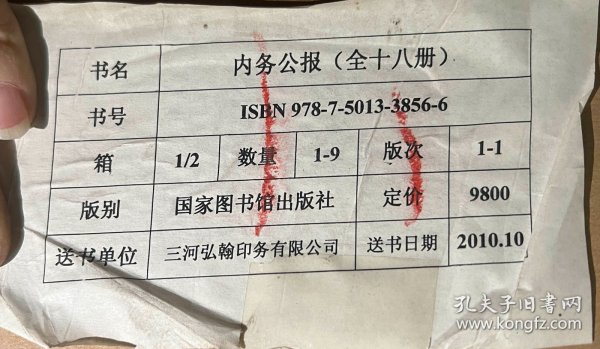 书名 内务公报（全十八册）
书号 ISBN 978-7-5013-3856-6
箱 1/2 数量 1-9 版次 1-1
版别 国家图书馆出版社 定价 9800
送书单位 三河弘翰印务有限公司 送书日期 2010.10
孔夫子旧书网
www.kongfz.com